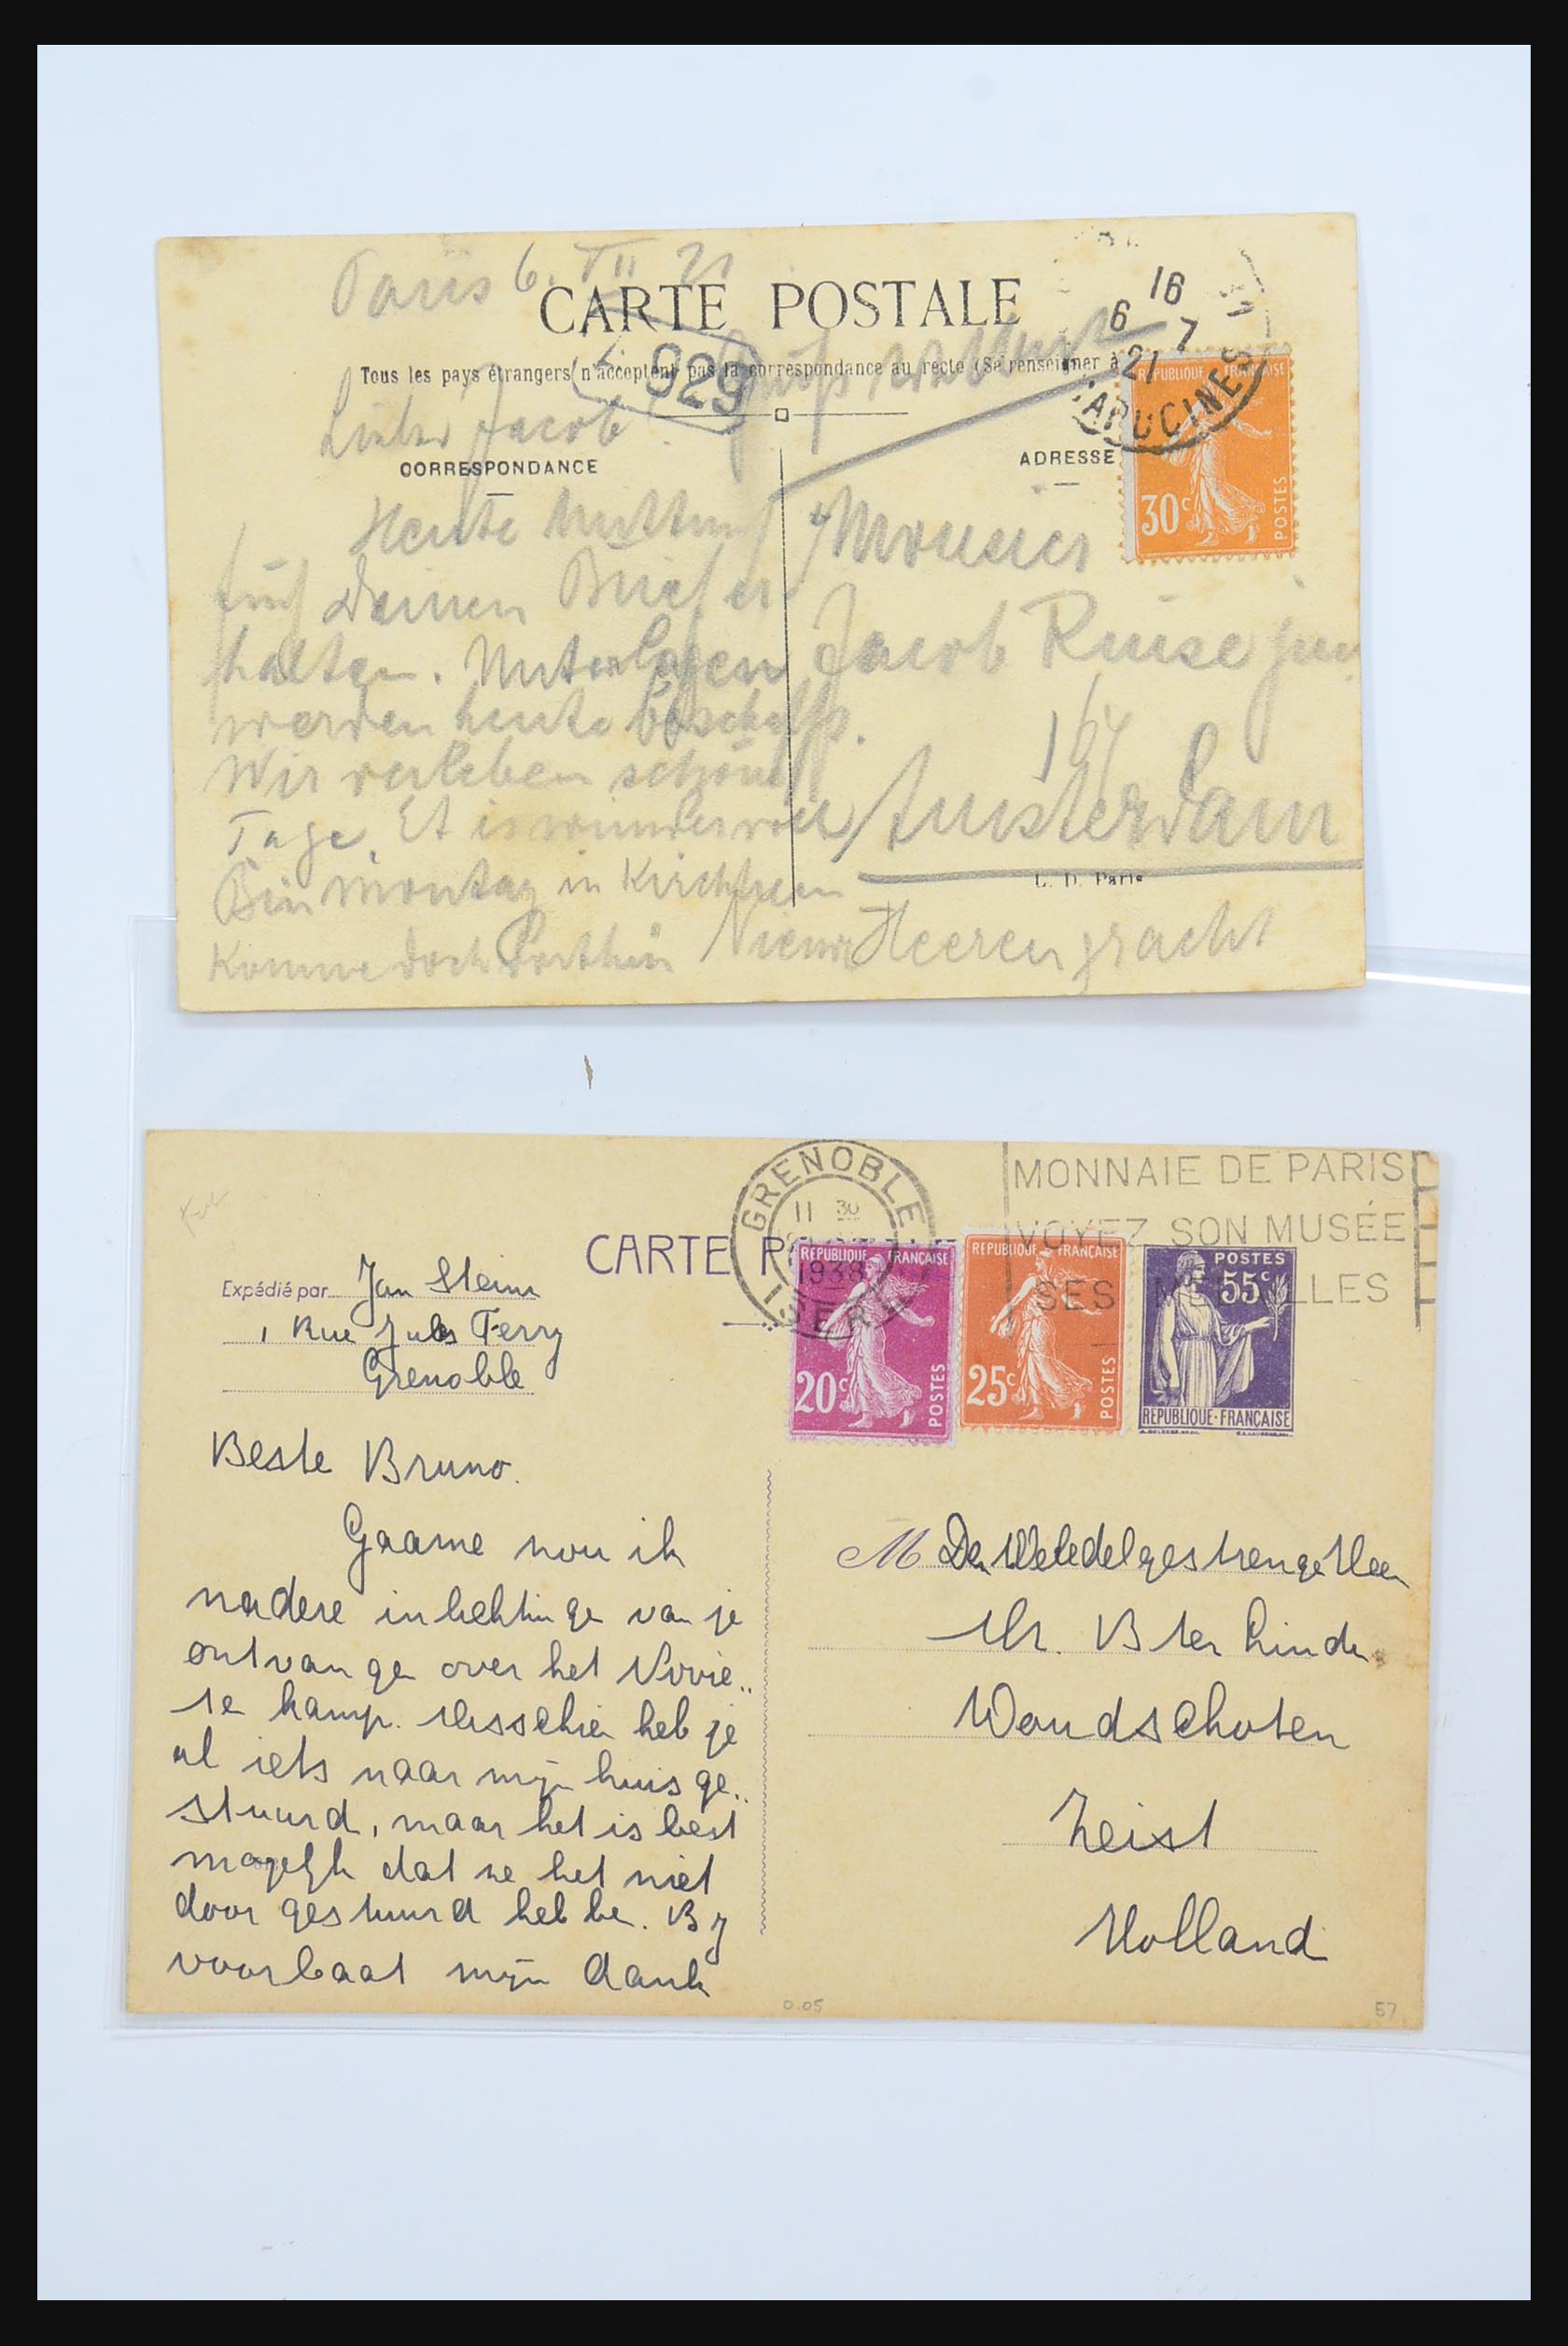 Paris 6. VII 21
CARTE POSTALE
Tous les pays étrangers n'acceptent pas la correspondance au recto (Se renseigner à
929
Lieber Jacob!
CORRESPONDANCE
ADRESSE
16
6 7
21
APUCINES
REPUBLIQUE FRANCAISE
30c
POSTES
Heute Mittag
Deinen Brief er
halten. Unterlagen
werden heute
Wir verleben schöne
Tage. Et is wundervoll
Bin Montag in Kirchheim
Komme doch dorthin
Monsieur
Jacob Ruise jun
164
Amsterdam
L. D. Paris
Nieuwe Heerengracht
GRENOBLE
11 30
1938
ISERE
MONNAIE DE PARIS
VOYEZ SON MUSÉE
SES LLES
CARTE P
REPUBLIQUE FRANÇAISE
20c
POSTES
REPUBLIQUE FRANÇAISE
25c
POSTES
POSTES
55c
REPUBLIQUE·FRANÇAISE
Expédié par Jan Stein
1 Rue Jules Ferry
Grenoble
Beste Bruno.
Gaarne nou ik
nadere inlichtinge van je
ontvange over het
se kamp. Misschien heb je
al iets naar mijn huis ge..
stuurd, maar het is best
mogelijk dat ze het niet
door gestuurd hebbe. Bij
voorbaat mijn dank
M Den Weledelgestrenge Heer
Mr. B ter Linden
Woudschoten
Zeist
Holland
0.05
57